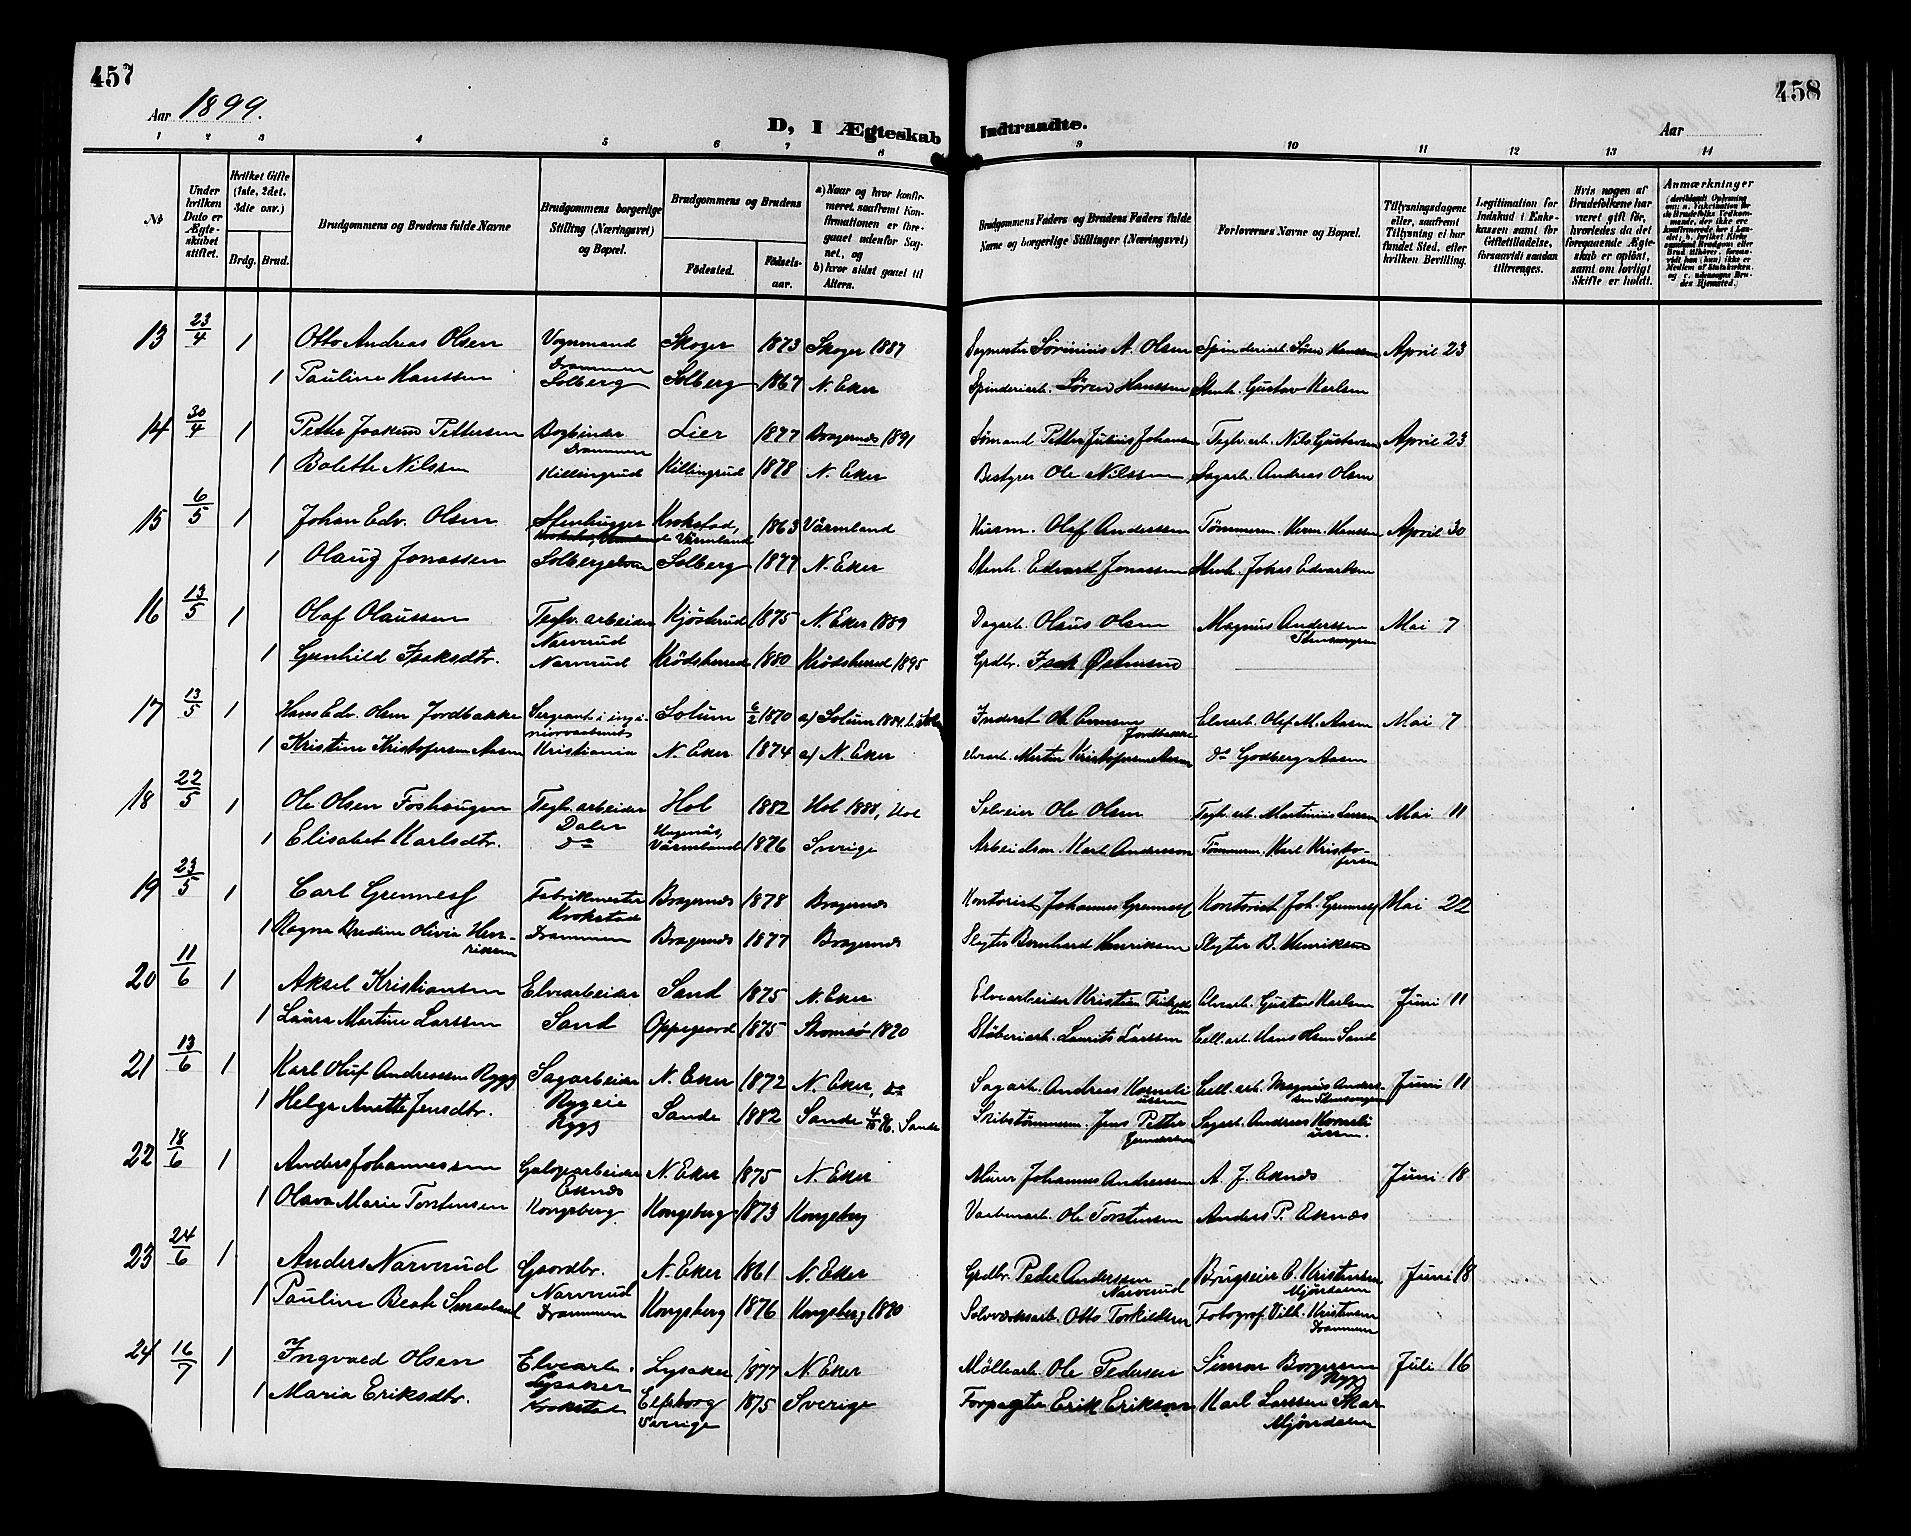 457
458
Aar 1899.
Aar
D, I Ægteskab Indtraadte.
1 2 3 4 5 6 7 8 9 10 11 12 13 14
No
Under hvilken Dato er Ægteskabet stiftet.
Hvilket Gifte (1ste, 2det, 3die osv.)
Brdg. Brud.
Brudgommens og Brudens fulde Navne
Brudgommens borgerlige Stilling (Næringsvei) og Bopæl.
Brudgommens og Brudens
Fødested.
Fødselsaar.
a) Naar og hvor konfirmeret, saafremt Konfirmationen er foregaaet udenfor Sognet, og
b) hvor sidst gaaet til Alters.
Brudgommens Faders og Brudens Faders fulde Navne og borgerlige Stillinger (Næringsvei)
Forlovernes Navne og Bopæl.
Tillysningsdagene eller, saafremt Tillysning ei har fundet Sted, efter hvilken Bevilling.
Legitimation for Indskud i Enkekassen samt for Giftetilladelse, forsaavidt saadan tiltrænges.
Hvis nogen af Brudefolkene har været gift før, hvorledes da det foregaaende Ægteskab er opløst, samt om lovligt Skifte er holdt.
Anmærkninger
13 23/4 1 Otto Andreas Olsen Vognmand Drammen Skoger 1873 Skoger 1887 Sørinius A. Olsen Spinderiarb. Søren Hanssen April 23
1 Pauline Hanssen Solberg Solberg 1867 N. Eker Spinderiarb. Søren Hanssen Stenh. Gustav Karlsen
14 30/4 1 Petter Joakim Pettersen Bogbinder Drammen Lier 1877 Bragernæs 1891 Sømand Petter Julius Johansen Teglv. arb. Nils Gustavsen April 23
1 Bolette Nilssen Killingrud Killingrud 1878 N. Eker Bestyrer Ole Nilssen Sagarb. Andreas Olsen
15 6/5 1 Johan Edv. Olsen Stenhugger Krokstad, Värmland 1863 Värmland Husm. Olaf Anderssen Tømmerm. Herm. Hanssen April 30
1 Olaug Jonassen Solbergelven Solberg 1877 N. Eker Stenh. Edvard Jonassen Stenh. Johas Edvardsen
16 13/5 1 Olaf Olaussen Teglv. arbeider Narverud Kjøsterud 1875 N. Eker 1889 Dagarb. Olaus Olsen Magnus Anderssen Mai 7
1 Gunhild Isaksdtr. Narverud Krødsherred 1880 Krødsherred 1895 Grdbr. Isak
17 13/5 1 Hans Edv. Olsen Jordbakke Sergeant i ingeniørvaabnets Solum 6/2 1870 a) Solum Inderst Ole Jordbakke Elvearb. Olof M. Aasen Mai 7
1 Kristine Kristofersen Aasen Kristiania N. Eker 1874 a) N. Eker Elvearb. Morten Kristofersen Aasen Do Godberg Aasen
18 22/5 1 Ole Olsen Foshaugen Teglv. arbeider Daler Hol 1882 Hol 1888, Hol Selveier Ole Olsen Teglv. arb. Martinius Larsen Mai 11
1 Elisabet Karlsdtr. Do Värmland 1876 Sverige Arbeidsm. Karl Andersson Tømmerm. Karl Kristofersen
19 23/5 1 Carl Grennes Fabrikmester Krokstad Bragernæs 1878 Bragernæs Kontorist Johannes Grennes Kontorist Joh. Grennes Mai 22
1 Ragna Bredine Olivia Henriksen Drammen Bragernæs 1877 Bragernæs Slagter Bernhard Henriksen Slagter B. Henriksen
20 11/6 1 Aksel Kristiansen Elvearbeider Sand 1875 N. Eker Elvearbeider Kristian Elvearb. Gustav Karlsen Juni 11
1 Laura Martine Larssen Sand Oppegaard 1875 Strømsø 1890 Støberiarb. Laurits Larssen Cell. arb. Hans Olsen Sand
21 13/6 1 Karl Oluf Andreassen Rygg Sagarbeider Ryggeie N. Eker 1872 N. Eker, do Sagarb. Andreas Korneliussen Cell. arb. Magnus Anderssen Juni 11
1 Helga Anette Jensdtr. Rygg Sande 1882 Sande Sande Skibstømmerm. Jens Petter Gundersen Sagarb. Andreas Korneliussen.
22 18/6 1 Anders Johannessen Galgearbeider Eknæs N. Eker 1875 N. Eker Murer Johannes Anderssen A. J. Eknæs Juni 18
1 Olava Marie Torstensen Kongsberg Kongsberg 1873 Kongsberg Vaabenarb. Ole Torstensen Anders P. Eknæs
23 24/6 1 Anders Narverud Gaardbr. Narverud N. Eker 1861 N. Eker Grdbr. Peder Anderssen Narverud Brugseier O. Kristensen Mjøndalen Juni 18
1 Pauline Beate Drammen Kongsberg 1876 Kongsberg 1890 Sølvværksarb. Otto Torkildsen Fotograf Vilh. Kristensen Drammen
24 16/7 1 Ingvald Olsen Elvearb. Lysaker Lysaker 1877 N. Eker Møllearb. Ole Pedersen Simon Borgersen Rygg Juli 16
1 Maria Eriksdtr. Krokstad Elfsborg Sverige 1875 Sverige Forpagter Erik Erikson Karl Larssen Mjøndalen